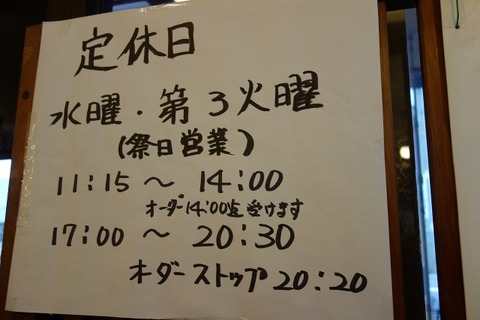 定休日
水曜・第3火曜
(祭日営業)
11:15 〜 14:00
オーダー14:00迄受けます
17:00 〜 20:30
オーダーストップ20:20